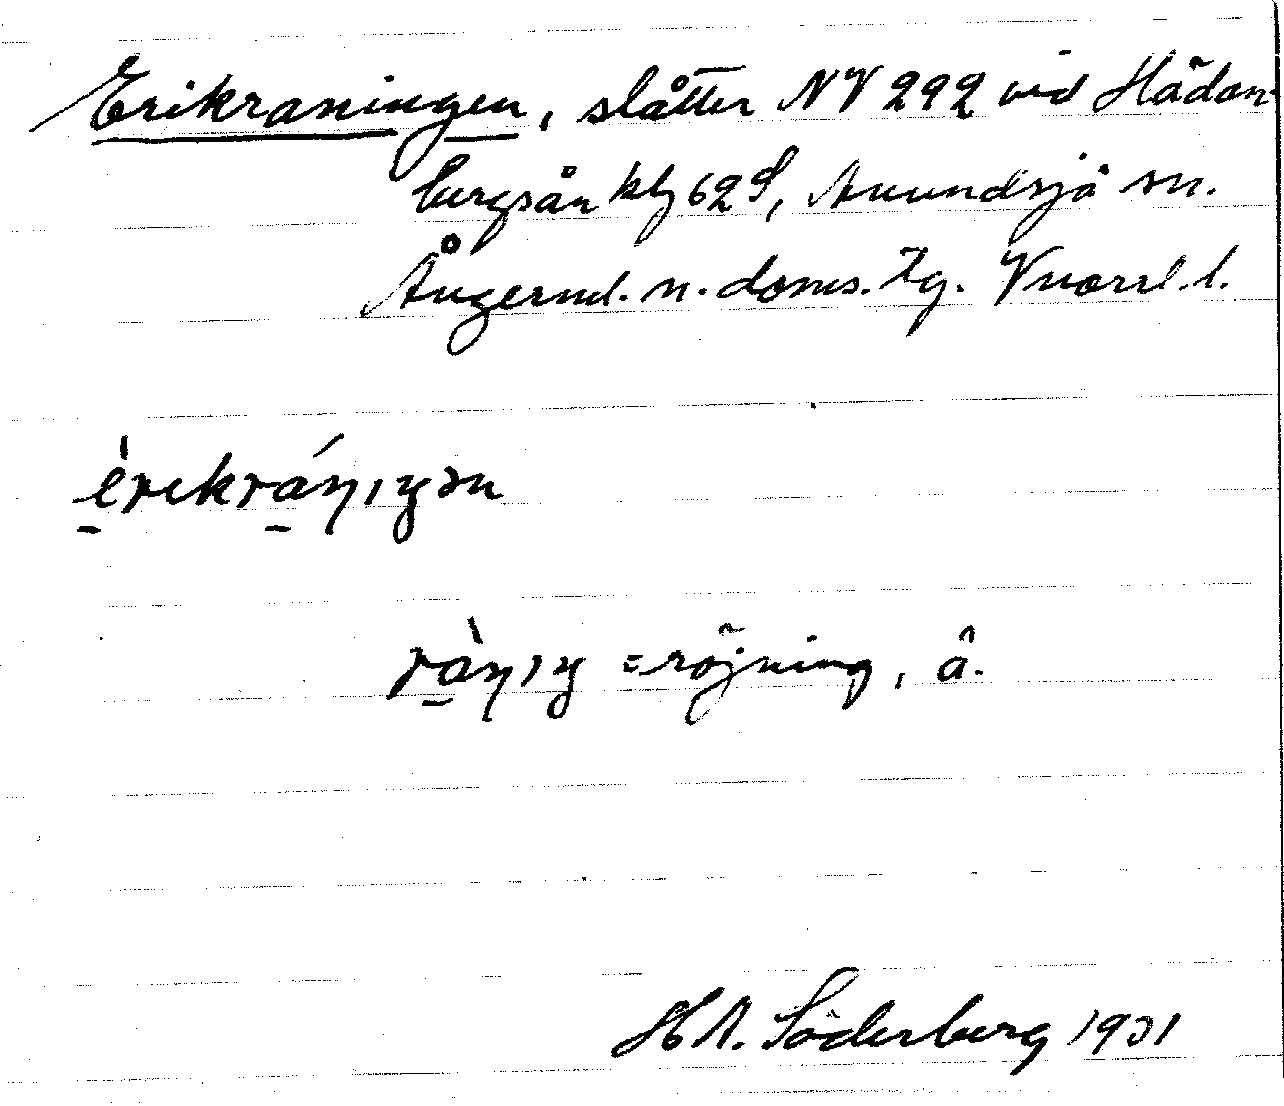 Erikraningen, slåtter NV 292 vid Hädan-
bergsån kbl 62 S, Anundsjö sn.
Ångerml. n. doms. tg. Vnorrl. l.
èrɩkráŋıŋən
ràŋıŋ = röjning, â.
H A. Söderberg 1931